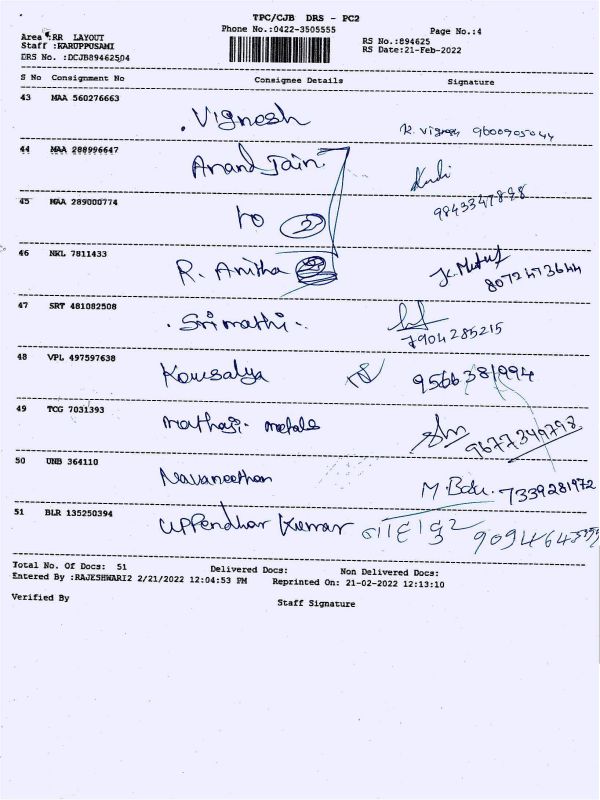 TPC/CJB DRS - PC2
Phone No.:0422-3505555 Page No.:4
Area :RR LAYOUT RS No.:894625
Staff :KARUPPUSAMI RS Date:21-Feb-2022
DRS No. :DCJB89462504
S No Consignment No Consignee Details Signature
43 MAA 560276663
Vignesh R. Vignesh 9600905044
44 MAA 288996647
Anand Jain
9843347898
45 MAA 289000774
to 2
46 NKL 7811433
R. Anitha
8072473644
47 SRT 481082508
Srimathi
7904285215
48 VPL 497597638
Kowsalya 9566381994
49 TCG 7031393
Mathaji metals
9677349798
50 UNB 364110
Navaneethan M. Babu 7339281972
51 BLR 135250394
Uppendhar Kumar
Total No. Of Docs: 51 Delivered Docs: Non Delivered Docs:
Entered By :RAJESHWARI2 2/21/2022 12:04:53 PM Reprinted On: 21-02-2022 12:13:10
Verified By Staff Signature